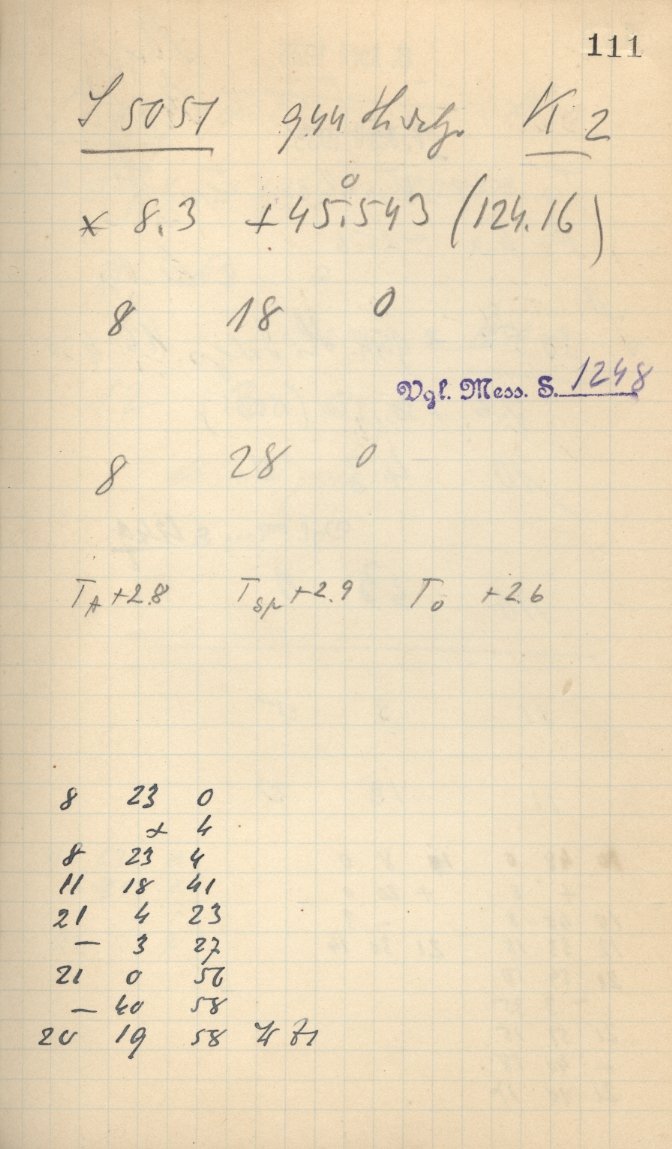 111
S 5051 9.44 K 2
× 8.3 +45°.543 (124.16)
8 18 0
Vgl. Mess. S. 1248
8 28 0
T_A +2.8 T_Sp +2.9 T_O +2.6
8 23 0
+ 4
8 23 4
11 18 41
21 4 23
— 3 27
21 0 56
— 40 58
20 19 58